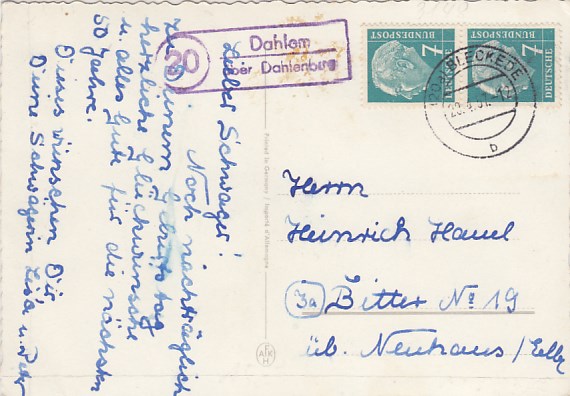 20
Dahlem
über Dahlenburg
DEUTSCHE
BUNDESPOST
7
DEUTSCHE
BUNDESPOST
7
BLECKEDE
b
Lieber Schwager!
Noch nachträglich
zu Deinem Geburtstag
herzliche Glückwünsche
u. alles Gute für die nächsten
50 Jahre.
Dieses wünschen Dir
Deine Schwägerin Lisa u. Peter
Printed in Germany / Imprimé d'Allemagne
Herrn
Heinrich Hauel
3a Bitter No 19
üb. Neuhaus/Elbe